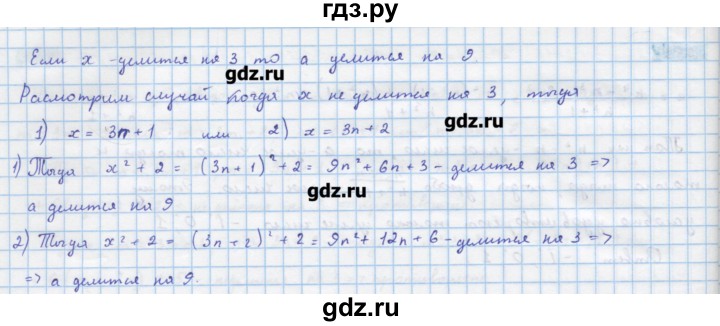 гдз.ру
Если x - делится на 3 то a делится на 9
gdz.ru
Рассмотрим случай когда x не делится на 3, тогда
1) x = 3n + 1 или 2) x = 3n + 2
gdz.ru
1) Тогда x² + 2 = (3n + 1)² + 2 = 9n² + 6n + 3 - делится на 3 =>
gdz.ru
a делится на 9
2) Тогда x² + 2 = (3n + 2)² + 2 = 9n² + 12n + 6 - делится на 3 =>
=> a делится на 9.
gdz.ru
gdz.ru